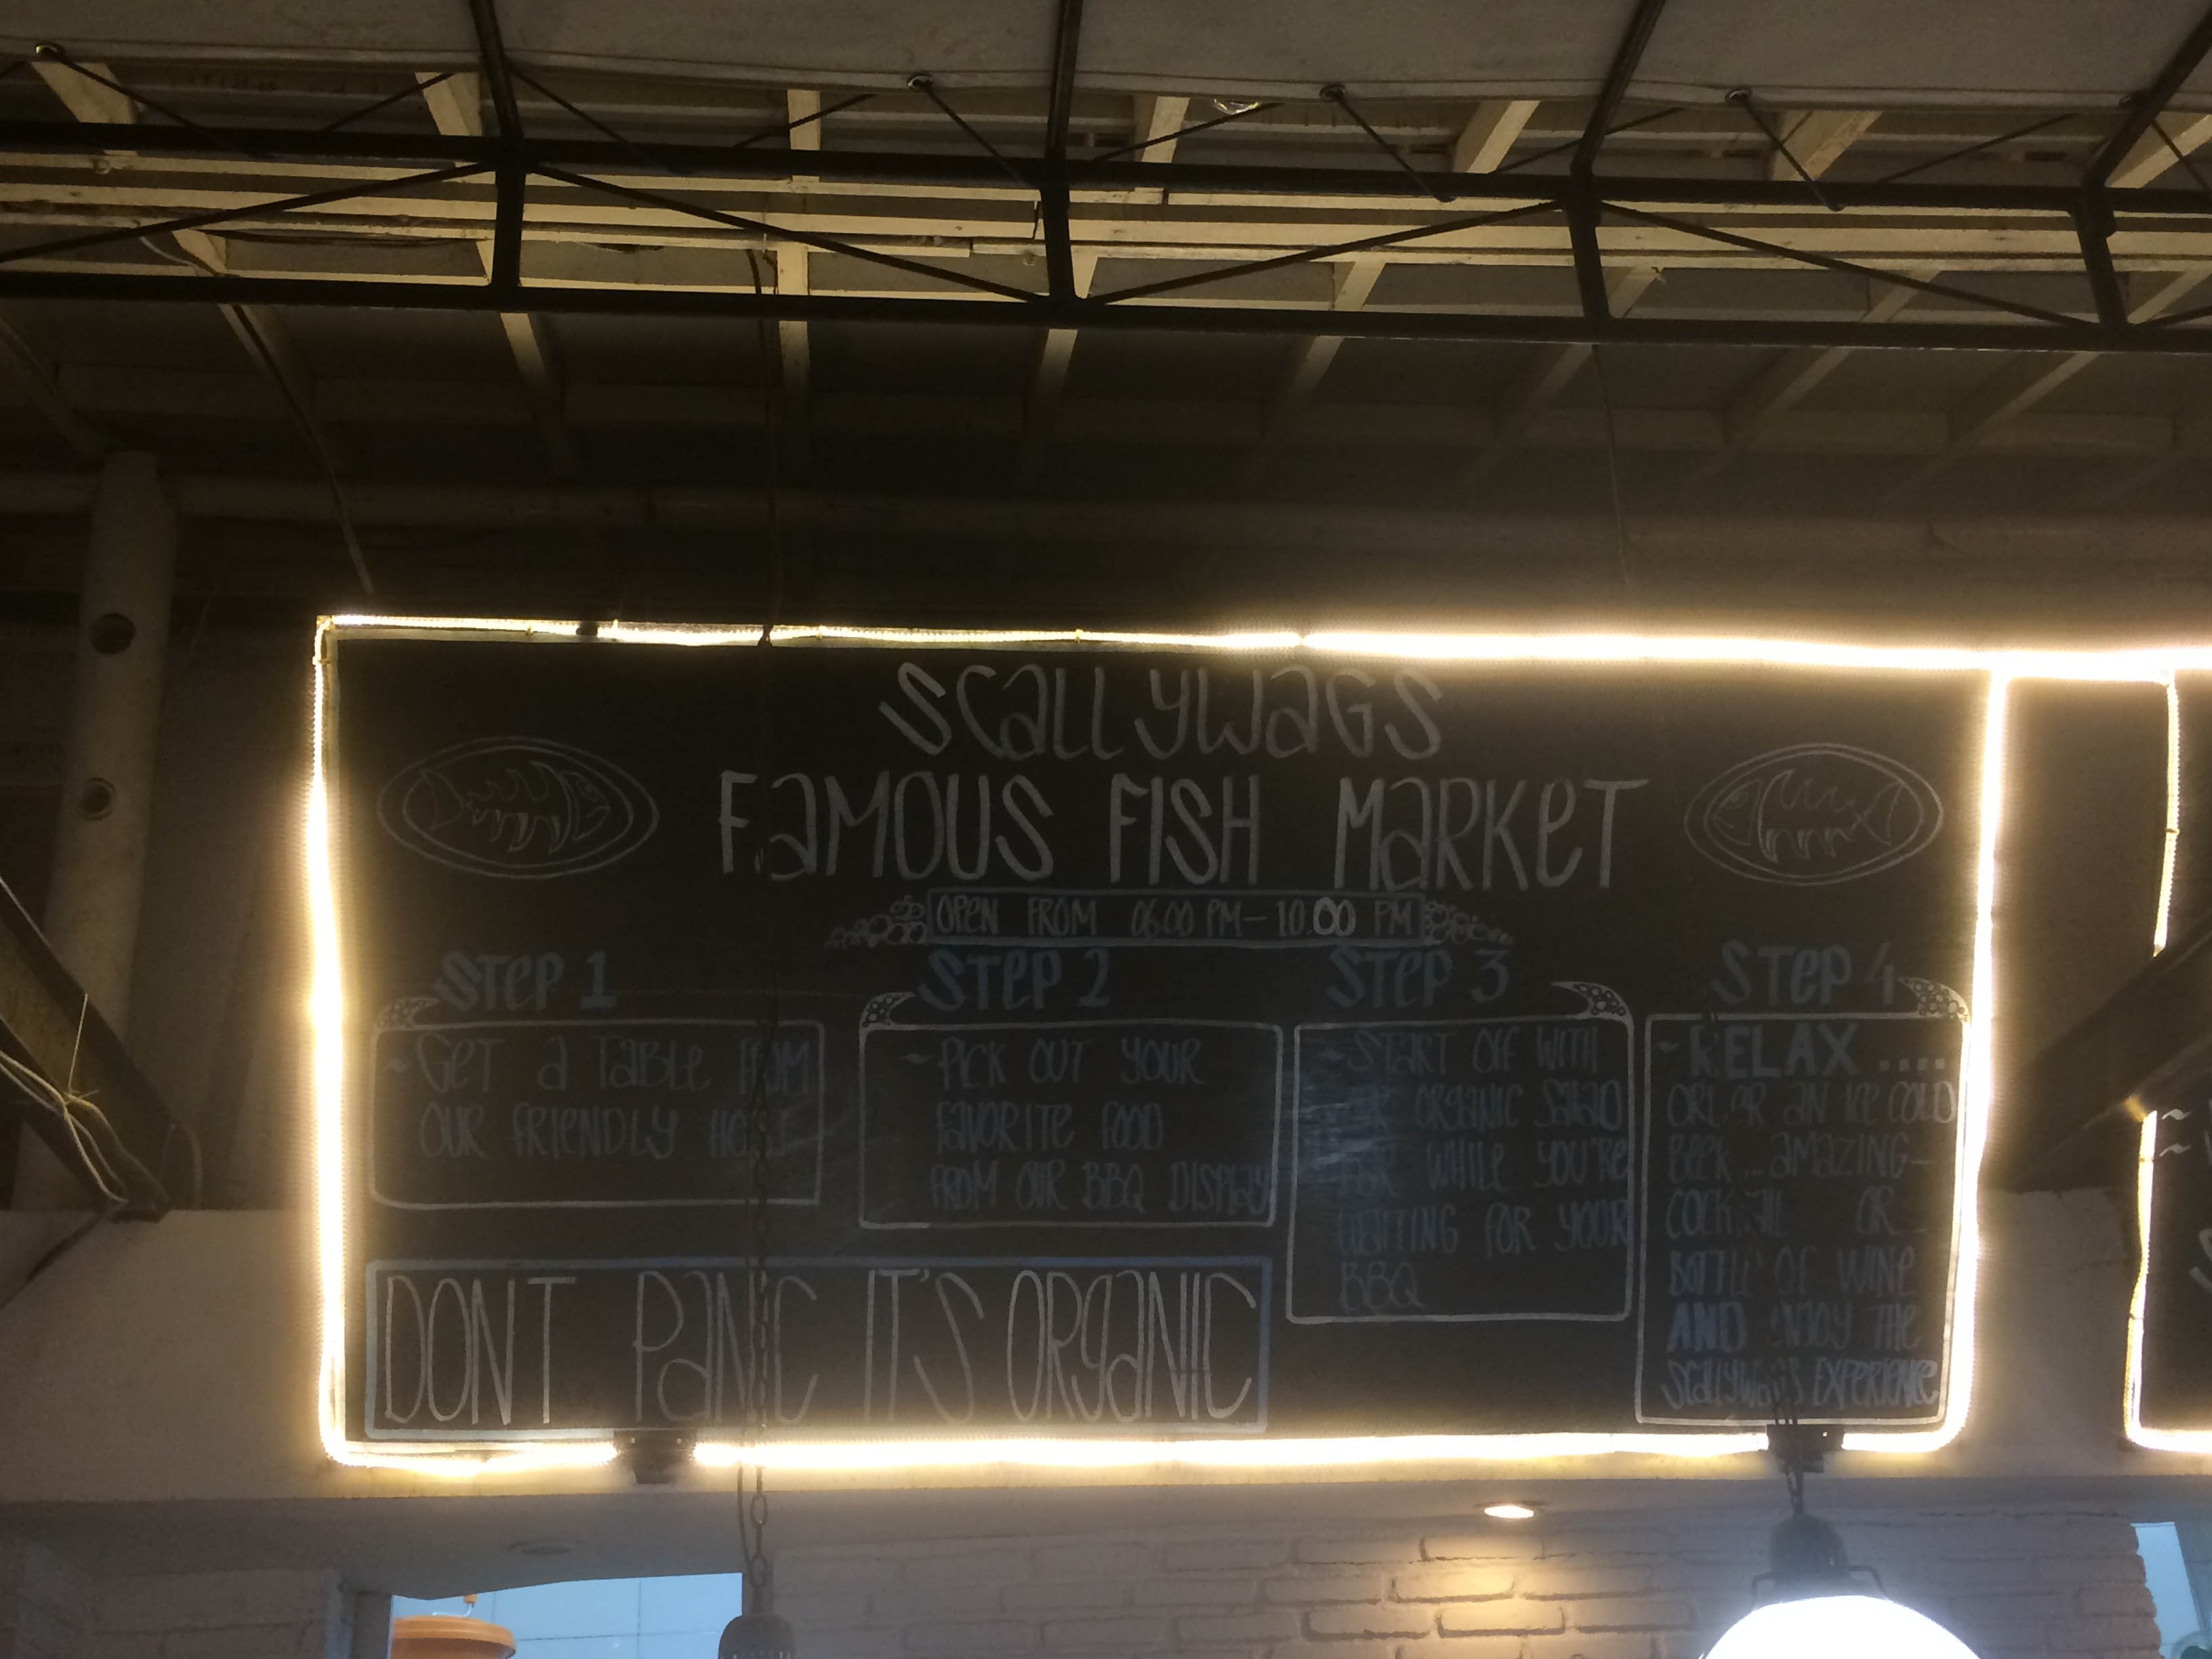 SCALLYWAGS
FAMOUS FISH MARKET
OPEN FROM 06.00 PM - 10.00 PM
STEP 1
~ GET A TABLE FROM
OUR FRIENDLY
STEP 2
~ PICK OUT YOUR
FAVORITE FOOD
FROM OUR BBQ DISPLAY
STEP 3
~ START OFF WITH
OUR ORGANIC SALAD
BAR WHILE YOU'RE
WAITING FOR YOUR
BBQ
STEP 4
~ RELAX ....
ORDER AN ICE COLD
BEER ... AMAZING
COCKTAIL OR
BOTTLE OF WINE
AND ENJOY THE
SCALLYWAGS EXPERIENCE
DONT PANIC IT'S ORGANIC